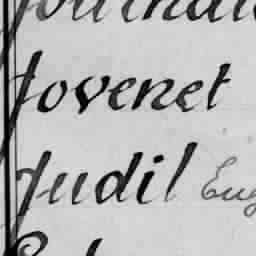 Jovenet
Judil Eug